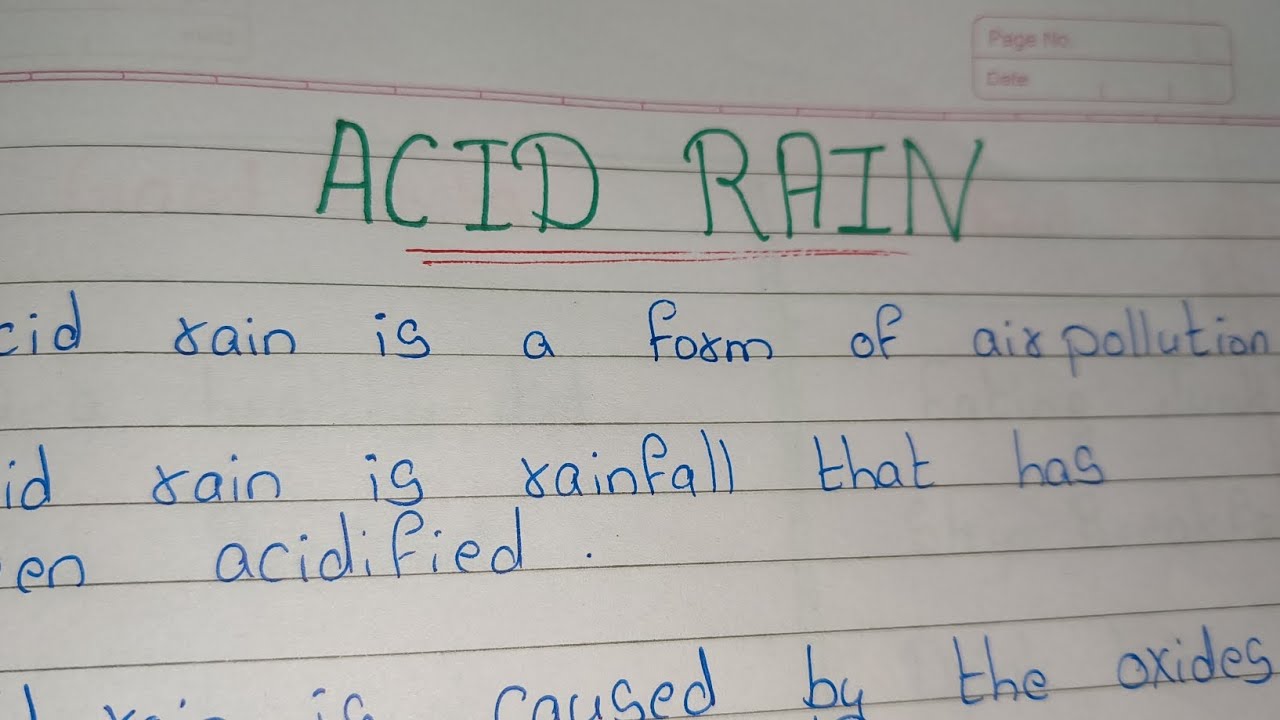 Page No.
Date
ACID RAIN
cid rain is a form of air pollution
id rain is rainfall that has
en acidified.
is caused by the oxides